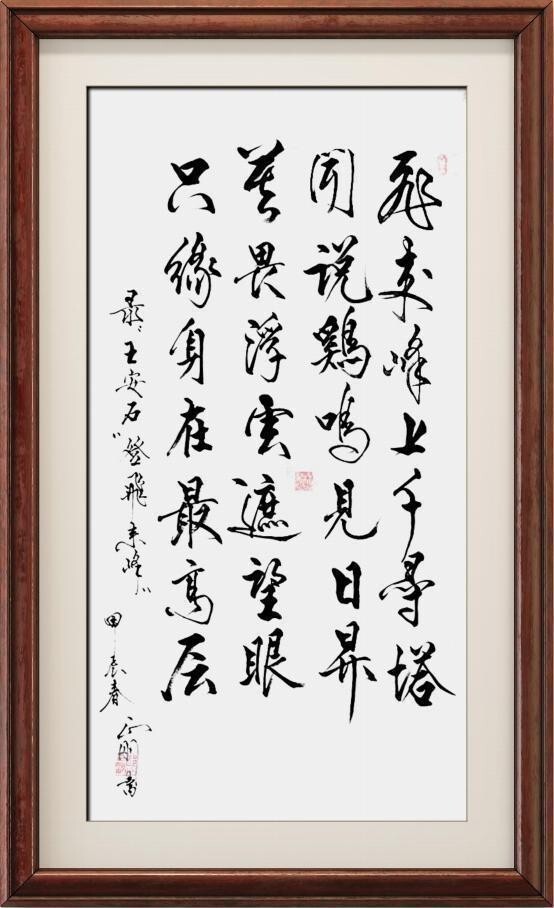 飛来峰上千尋塔
聞说鷄鳴見日昇
甚畏浮雲遮望眼
只緣身在最高层
录王安石"登飛来峰"
甲辰春 书